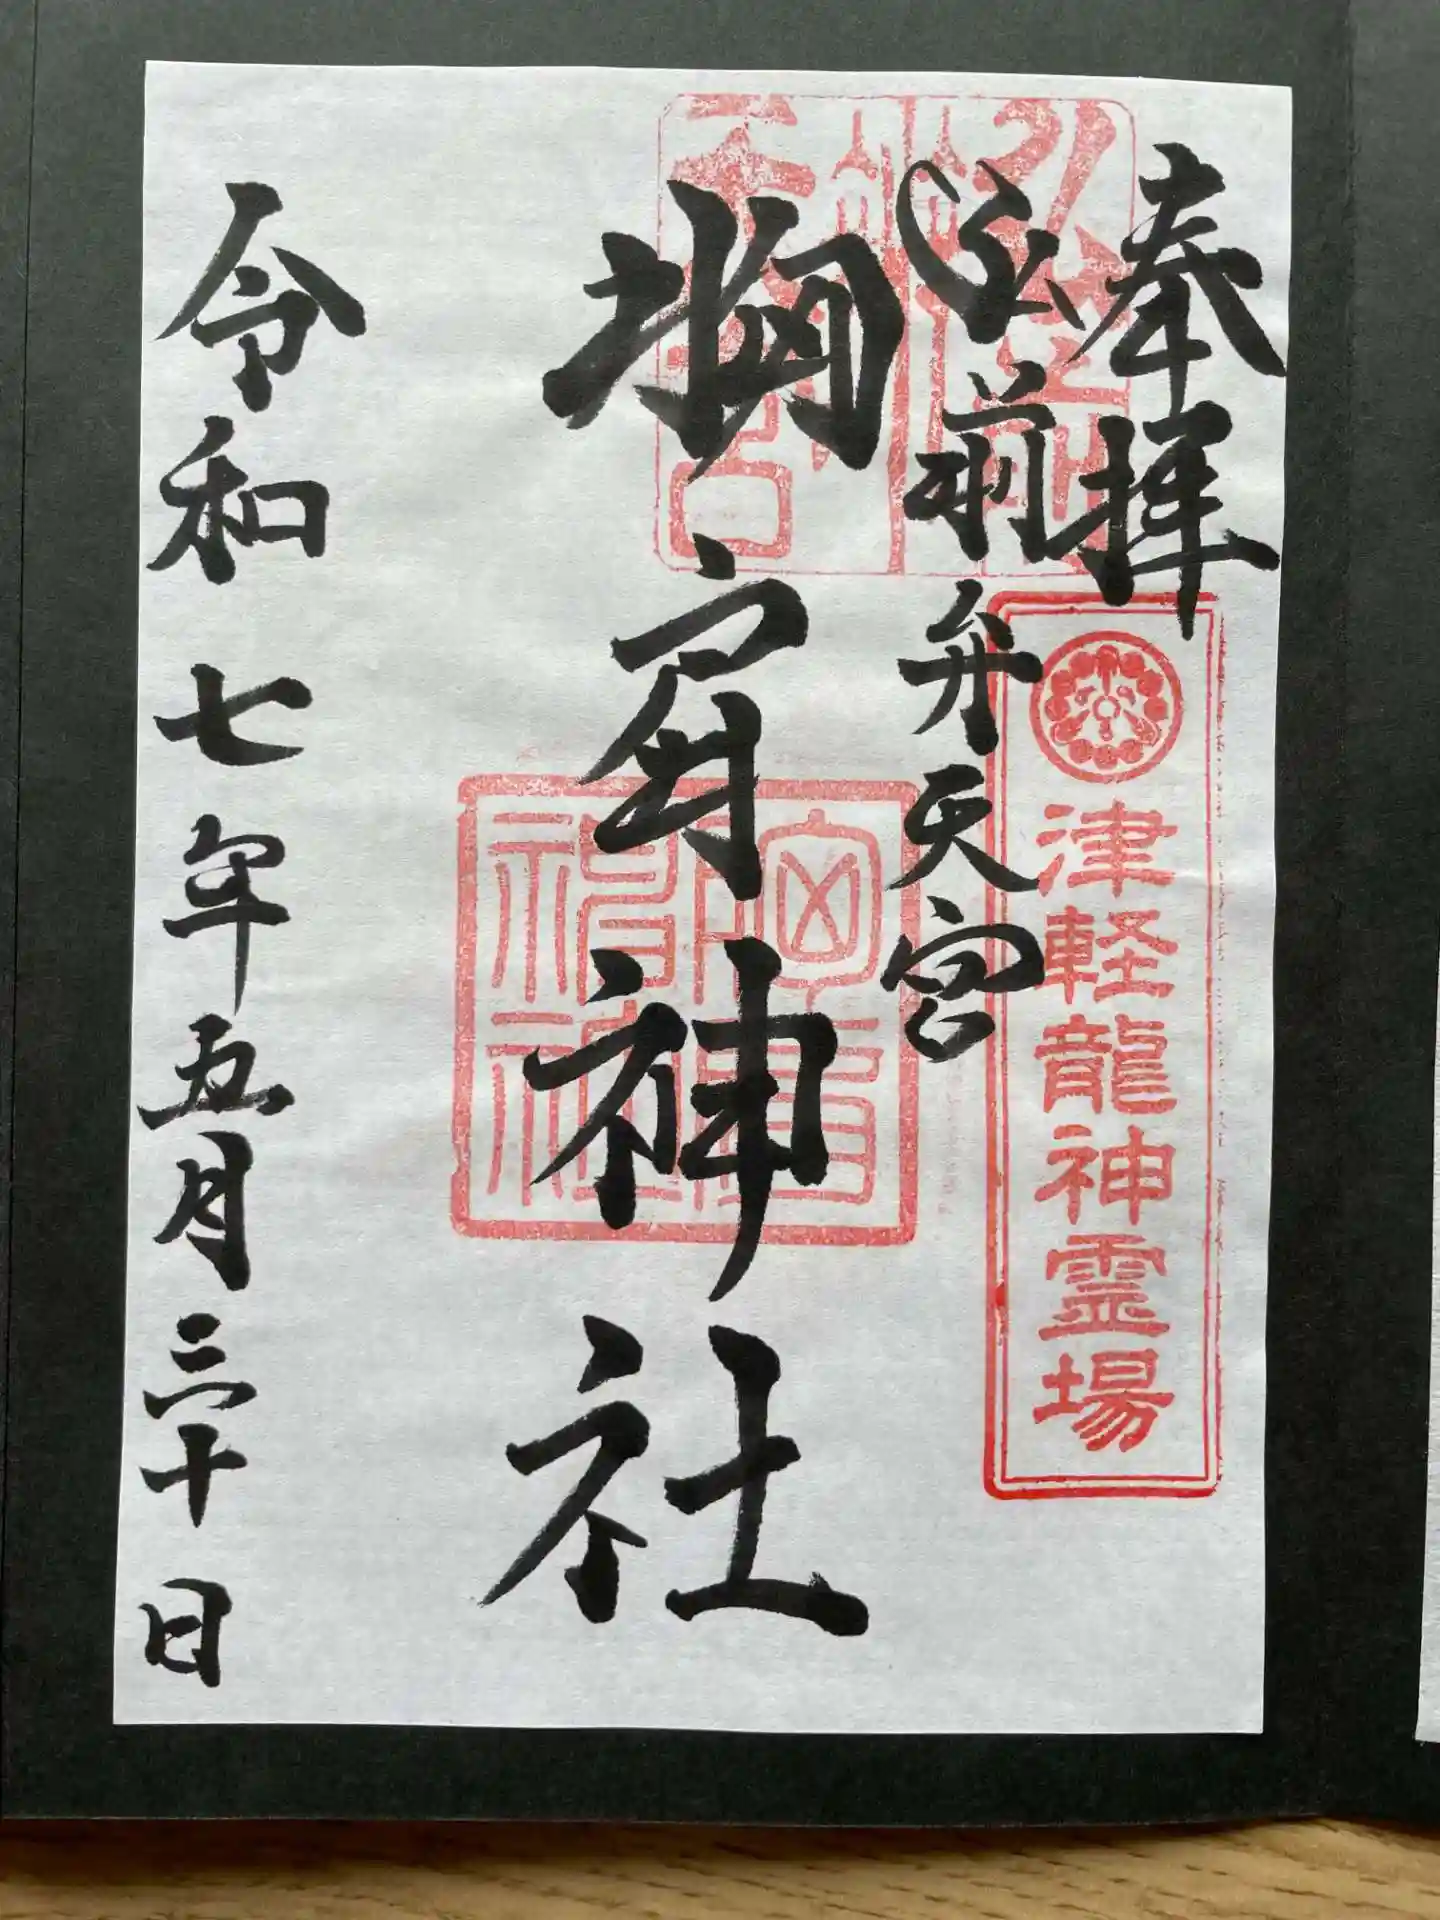 奉拝
津軽龍神霊場
弘前弁天宮
胸肩神社
令和七年五月三十日